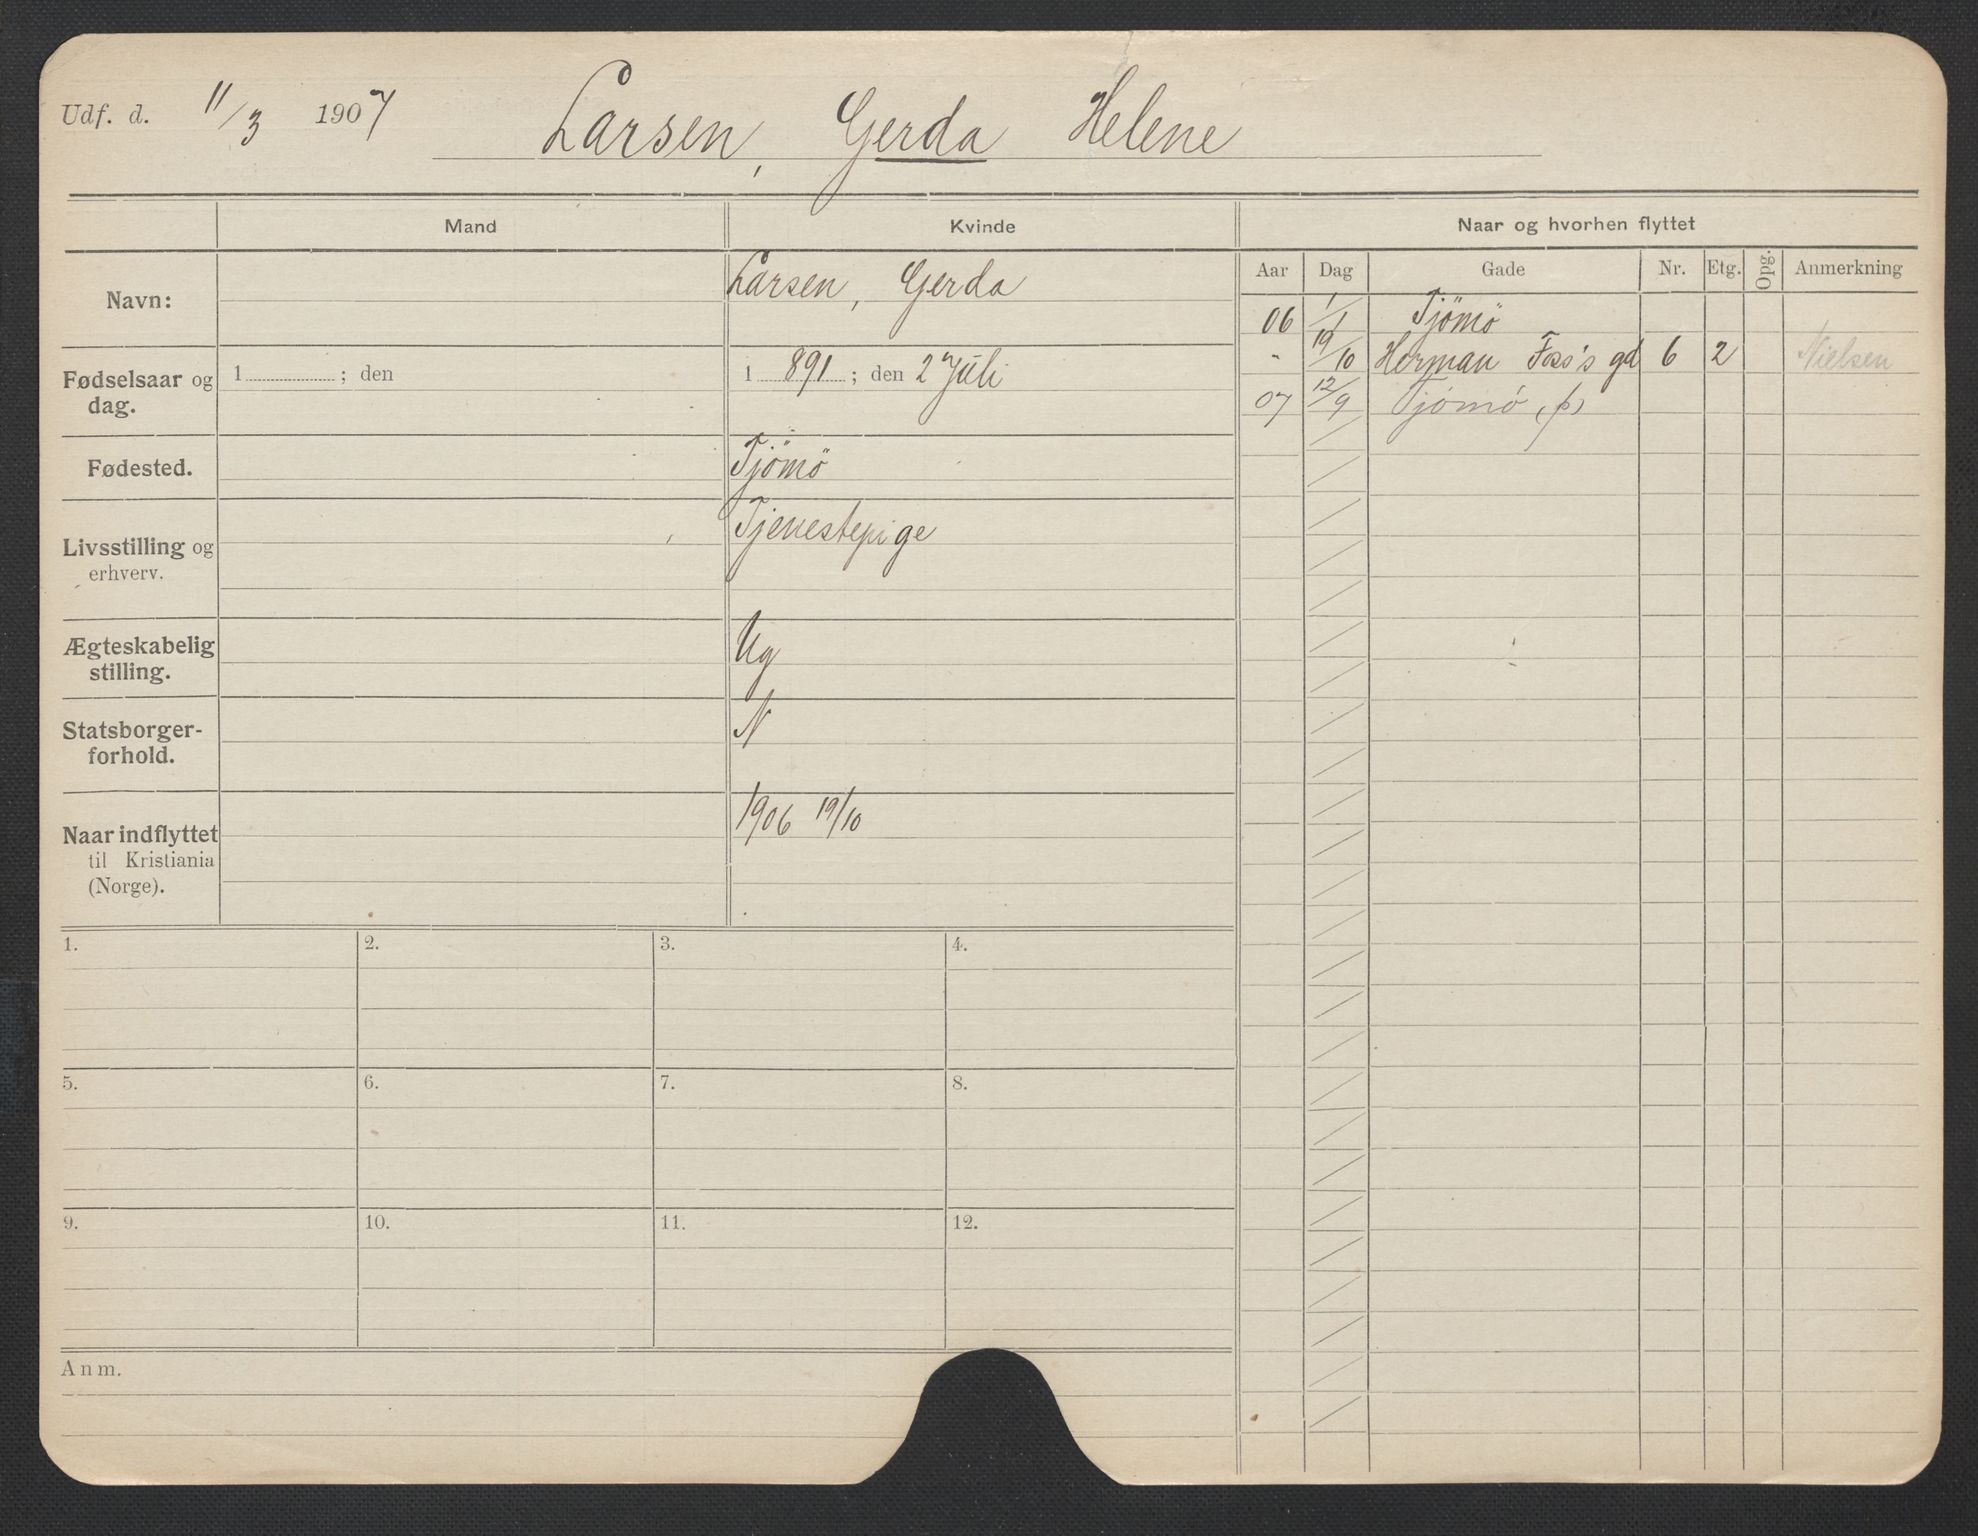 Udf. d. 11/3 1907 Larsen, Gerda Helene
Mand Kvinde Naar og hvorhen flyttet
Aar Dag Gade Nr. Etg. Opg. Anmerkning
Navn: Larsen, Gerda
06 1/1 Tjömö
" 19/10 Herman Foss's gd 6 2 Nielsen
07 12/9 Tjömö (p)
Fødselsaar og dag. 1 ; den 1 891 ; den 2 Juli
Fødested. Tjömö
Livsstilling og erhverv. Tjenestepige
Ægteskabelig stilling. Ug
Statsborger-
forhold. N
Naar indflyttet
til Kristiania
(Norge). 1906 19/10
1. 2. 3. 4.
5. 6. 7. 8.
9. 10. 11. 12.
Anm.